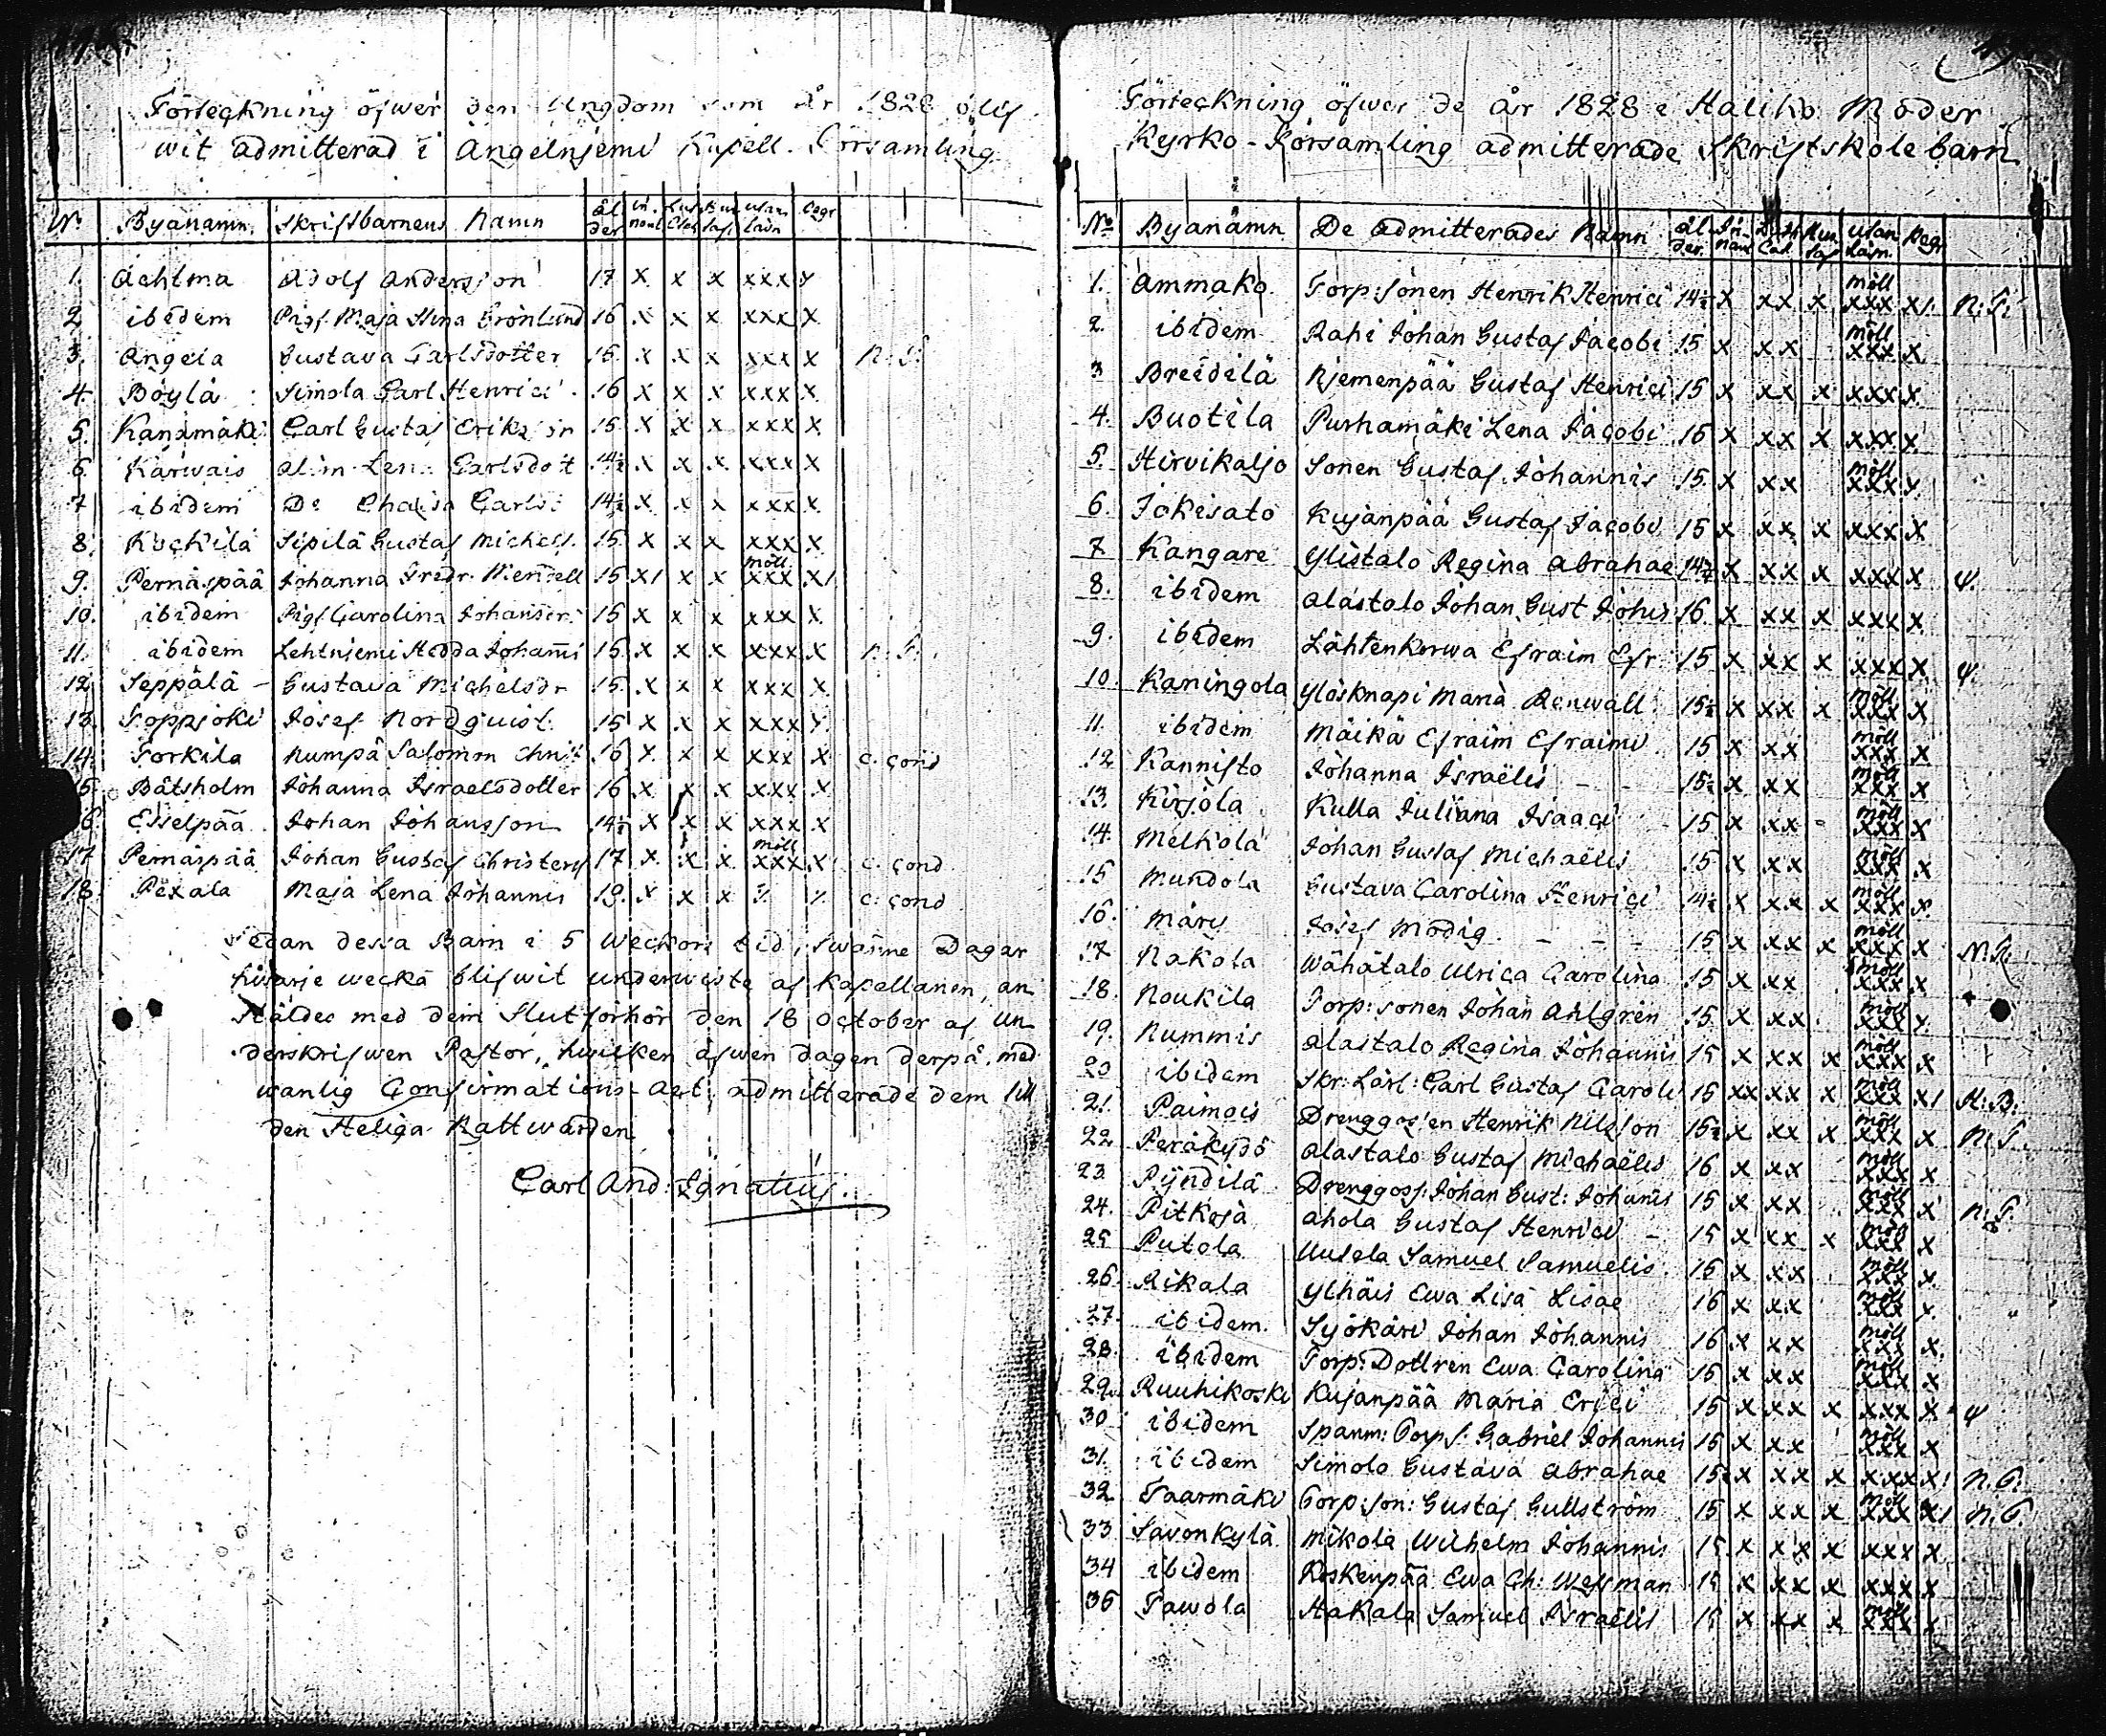 Förteckning öfwer den Ungdom som år 1828 blif
wit admitterad i Angelnjemi Kapell-Församling
No Byanamn. Skriftbarnens Namn ål der in- nant Luth Cat Hus taf. utan läsn Begr
1. Aehtma Adolf Andersson 17 x x x xxx x
2. ibidem Pig. Maja Stina Grönlund 16 x x x xxx x
3. Angela Gustava Carlsdotter 15 x x x xxx x
4. Böylä Simola Carl Henrici 16 x x x xxx x
5. Kanamäki Carl Gustaf Eriksson 15 x x x xxx x
6. Karwais Lena Carlsdot 14½ x x x xxx x
7 ibidem Do Carls: 14½ x x x xxx x
8. Kockila Sipilä Gustaf Michels. 15 x x x xxx x
9. Pernäspää Johanna Fredr. 15 x/ x x möll xxx x/
10. ibidem Pigs Carolina Johansdr. 15 x x x xxx x
11. ibidem Lehtnjemi Hedda Johanni 15 x x x xxx x
12 Seppälä - Gustava Michelsdr 15 x x x xxx x
13. Toppjoki Josef Nordquist 15 x x x xxx x
14. Torkila Rumpä Salomon 16 x x x xxx x c. cond
15. Båtsholm Johanna Israelsdotter 16 x x x xxx x
16. Esselpää Johan Johansson 14½ x x x xxx x
17 Pernäspää Johan Gustaf Christers 17 x x x möll xxx x c. cond
18. Pexala Maja Lena Johannis 19 x x x c. cond
Sedan dessa Barn i 5 Weckors tid, Dagar
hwarje wecka blifwit underwiste af Kapellanen, an
ställdes med dem Slutförhör den 18 October af Un
derskrifwen Pastor, hwilken äfwen dagen derpå, med
wanlig Confirmations-Act, admitterade dem till
den Heliga Nattwarden
Carl And: Ignatius.
Förteckning öfwer de år 1828 i Haliko Moder
Kyrko-Församling admitterade Skriftskolebarn
No Byanämn De admitterades Namn ål der. In- nant Luth Cat. Hus taf utan läsn. Begr
1. Ammako Torp: Sonen Henrik Henrici 14½ x xx x möll xxx x/. N: T:
2. ibidem Rahi Johan Gustaf Jacobi 15 x xx möll xxx x
3 Breidilä Njemenpää Gustaf Henrici 15 x xx x xxx x
4. Buotila Purhamäki Lena Jacobi 16 x xx x xxx x
5. Hirvikaljo Sonen Gustaf Johannis 15 x xx möll xxx x
6. Jokisato Kujanpää Gustaf Jacobi 15 x xx x xxx x
7 Kangare Ylistalo Regina Abrahae 14½ x xx x xxx x
8. ibidem Alastalo Johan Gust Johis 16 x xx x xxx x
9. ibidem Lähtenkorwa Efraim Efr 15 x xx x xxx x
10. Kaningola Ylösknapi Maria Renwall 15½ x xx x möll xxx x
11. ibidem Mäikä Efraim Efraimi 15 x xx möll xxx x
12 Kannisto Johanna Israëlis - - 15½ x xx möll xxx x
13. Kirjola Kulla Juliana Isaaci 15 x xx - möll xxx x
14. Melkola Johan Gustaf Michaëlis 15 x xx möll xxx x
15 Mundola Gustava Carolina Henrici 14½ x xx x möll xxx x
16. Märy Josef Modig - - - 15 x xx x möll xxx x
17 Nakola Wähätalo Ulrica Carolina 15 x xx möll xxx x
18. Noukila Torp: sonen Johan Ahlgren 15 x xx möll xxx x
19. Nummis Alastalo Regina Johannis 15 x xx x möll xxx x
20 ibidem Skr: Lärl: Carl Gustaf Caroli 15 xx xx x möll xxx x/ H: B:
21. Paimois Drenggossen Henrik Nilsson 15½ x xx x möll xxx x N. T.
22 Peräkylä Alastalo Gustaf Michaëlis 16 x xx möll xxx x
23. Pyndilä Drenggoss: Johan Gust: Johanis 15 x xx möll xxx x N. T.
24. Pitkoja Ahola Gustaf Henrici - 15 x xx x möll xxx x
25 Putola Uusela Samuel Samuelis 15 x xx möll xxx x
26. Rikala Ylhäis Ewa Lisa 16 x xx möll xxx x
27. ibidem Syökäri Johan Johannis 16 x xx möll xxx x
28. ibidem Torp: Dottren Ewa Carolina 15 x xx möll xxx x
29. Ruuhikoski Kujanpää Maria Erici 15 x xx x xxx x
30 ibidem Spanm: Torp S: Gabriel Johannis 16 x xx möll xxx x
31. ibidem Simola Gustava Abrahae 15½ x xx x xxx x/ N. T.
32 Taarmäki Torp: son: Gustaf Gullström 15 x xx x möll xxx x/ N. T.
33 Savonkylä Mikola Wilhelm Johannis 15 x xx x xxx x
34 ibidem Koskenpää Ewa Ch: Wessman 15 x xx x xxx x
35 Tawola Hakala Samuel Israëlis 15 x xx x möll xxx x